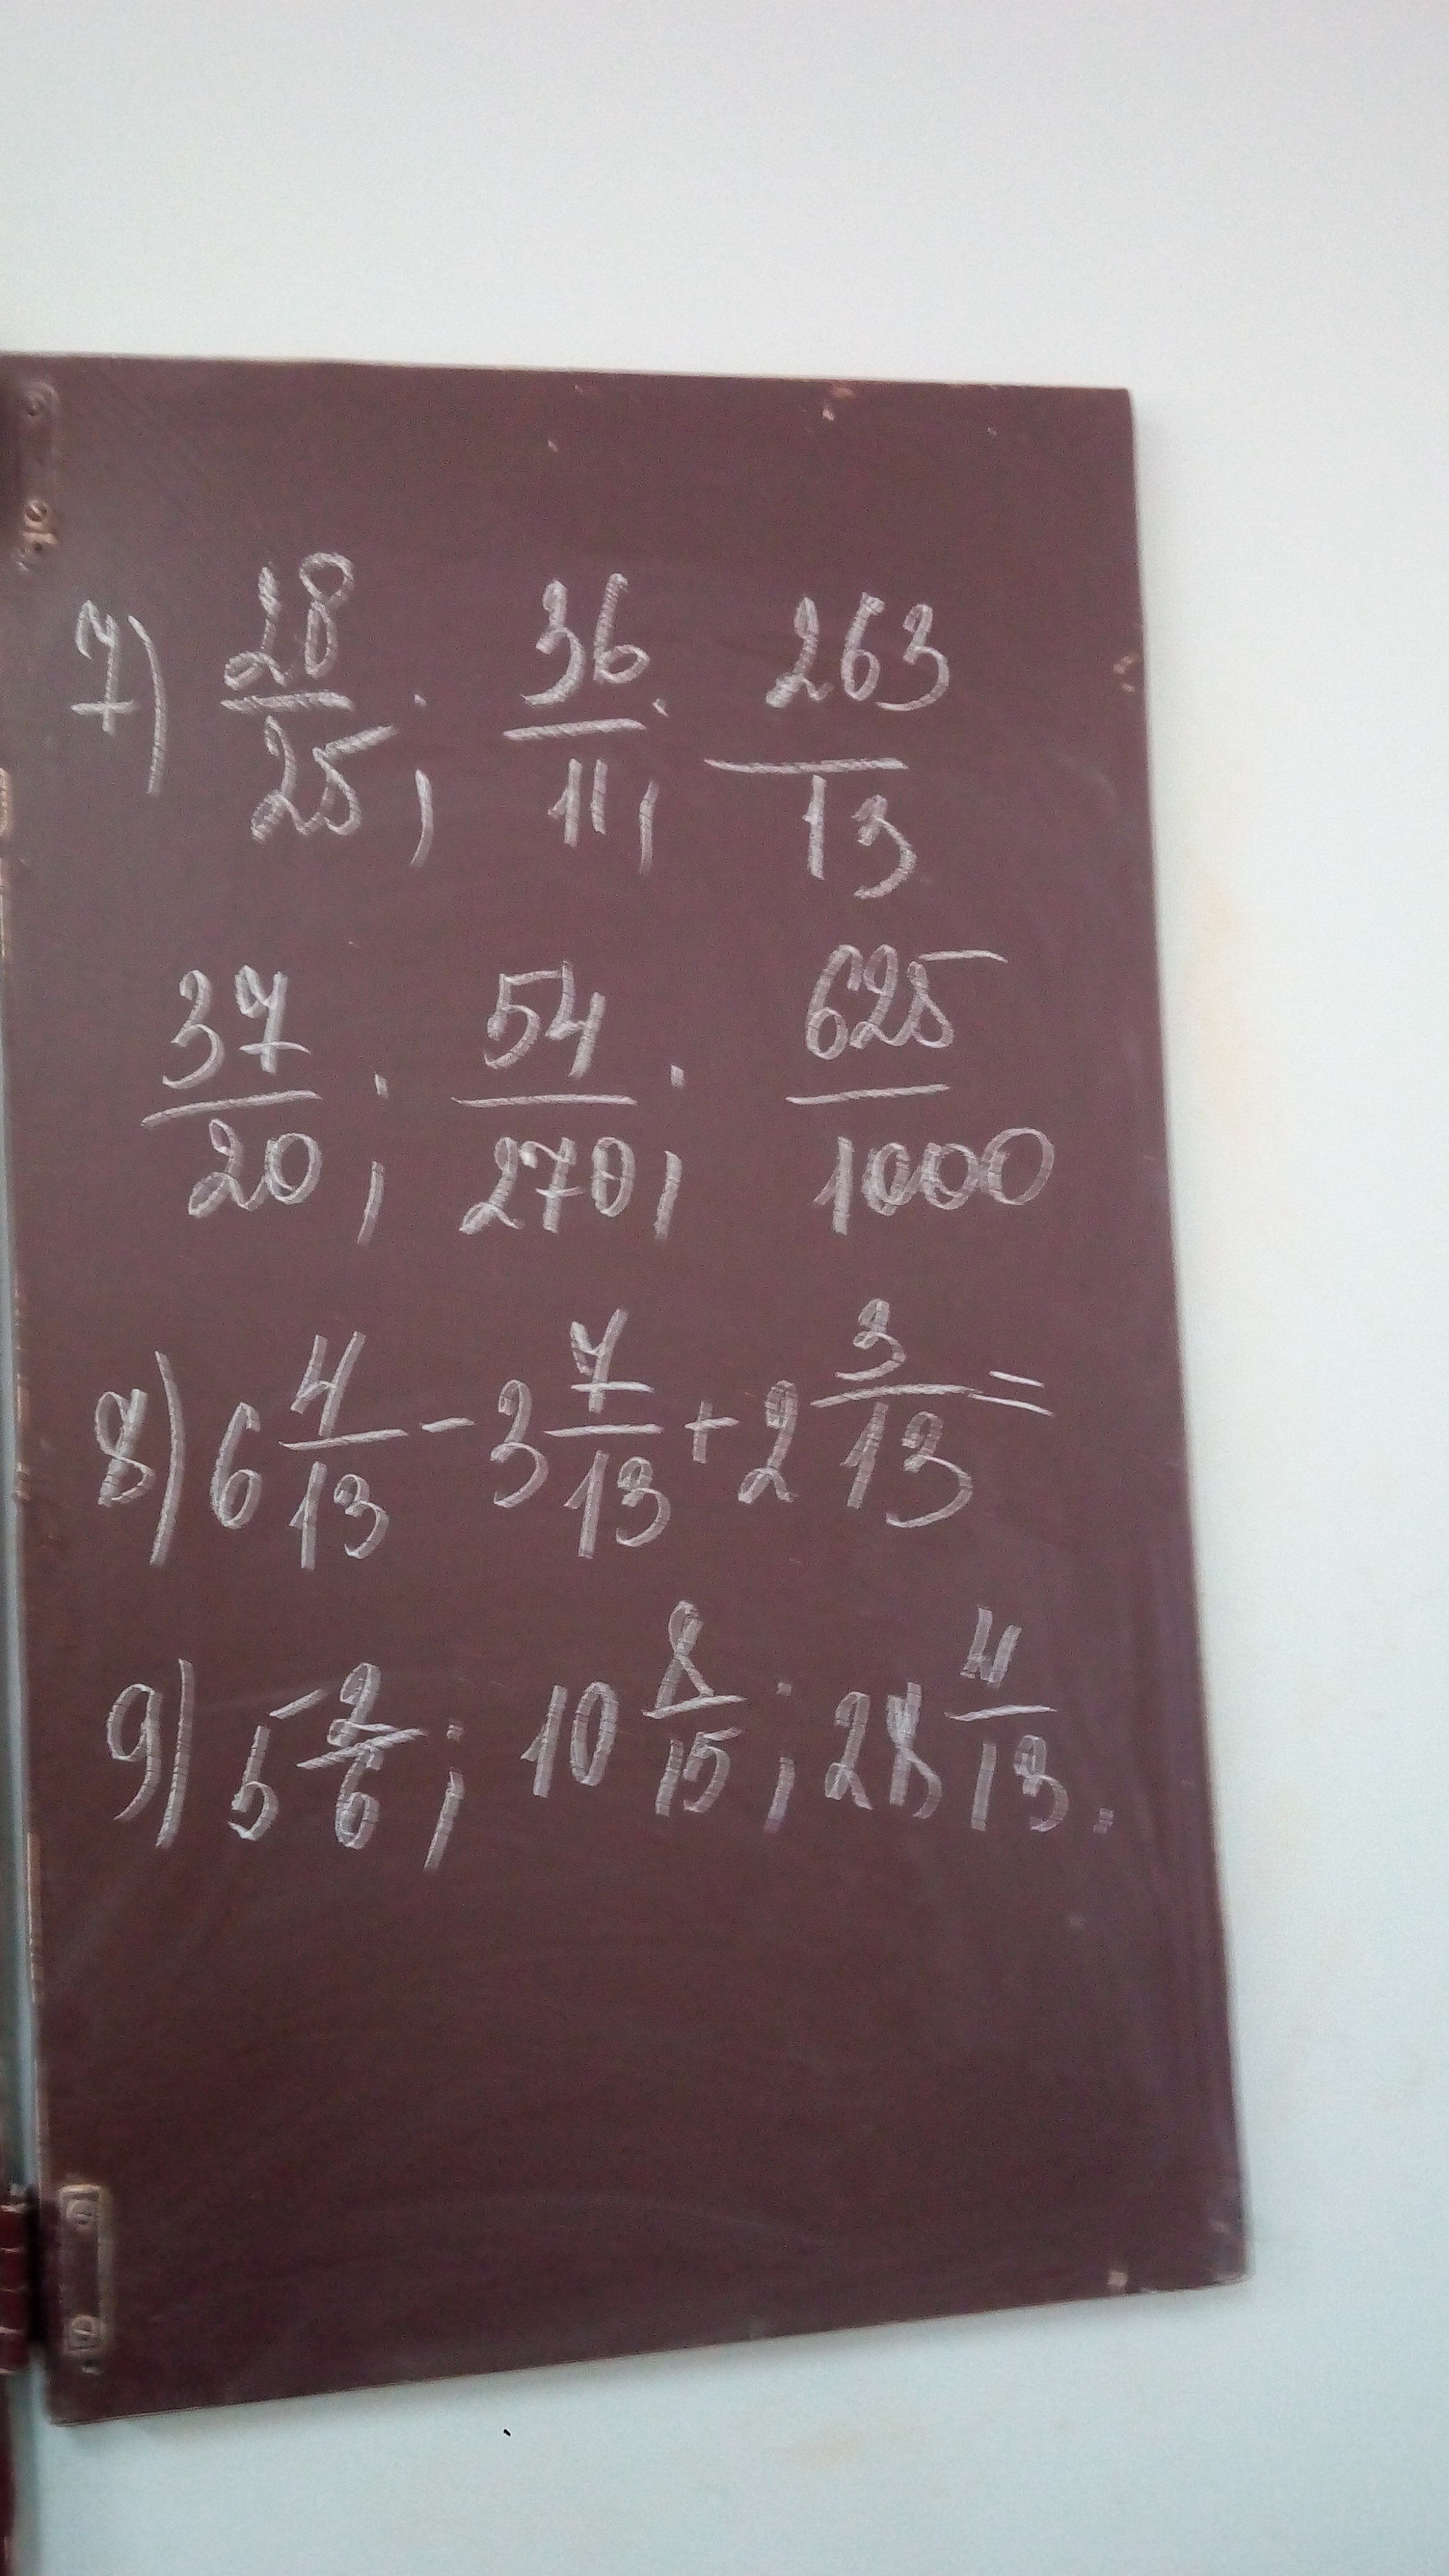 7) 28/25; 36/11; 263/13
37/20; 54/270; 625/1000
8) 6 4/13 - 3 7/13 + 2 3/13 =
9) 5 2/6; 10 8/15; 28 4/13.